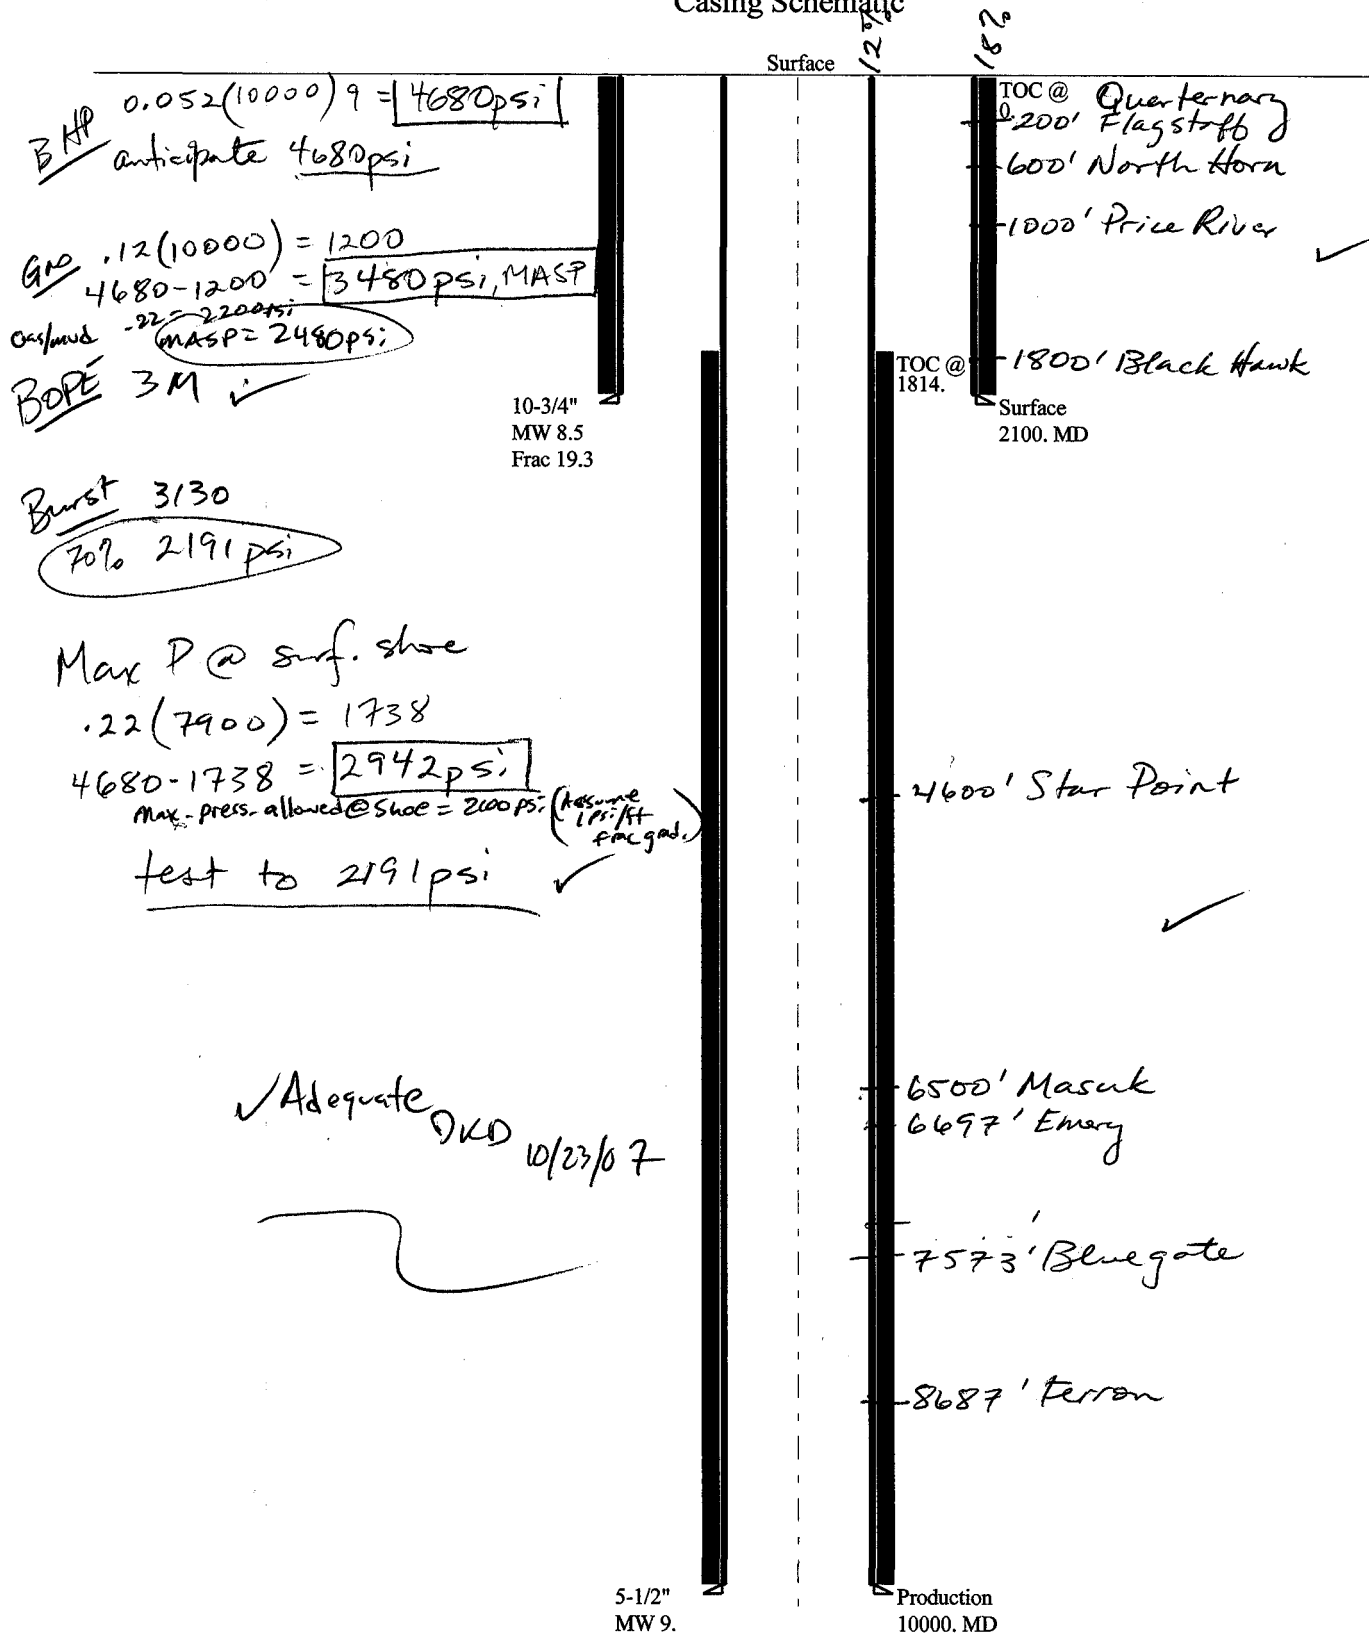 Casing Schematic
12%
18%
Surface
BHP 0.052(10000)9 = 4680psi
anticipate 4680psi
Gas .12(10000) = 1200
4680-1200 = 3480psi, MASP
Gas/mud .22 = 2200psi
MASP = 2480psi
BOPE 3M ✓
10-3/4"
MW 8.5
Frac 19.3
Burst 3130
70% 2191 psi
Max P @ surf. shoe
.22(7900) = 1738
4680-1738 = 2942psi
Max. press. allowed @ shoe = 2100 psi (Assume
1psi/ft
frac grad.)
test to 2191psi ✓
✓ Adequate DKD 10/23/07
TOC @
0.
Quarternary
200' Flagstaff
600' North Horn
1000' Price River
✓
TOC @
1814.
1800' Black Hawk
Surface
2100. MD
4600' Star Point
✓
6500' Masuk
6697' Emery
7573' Bluegate
8687' Ferron
5-1/2"
MW 9.
Production
10000. MD